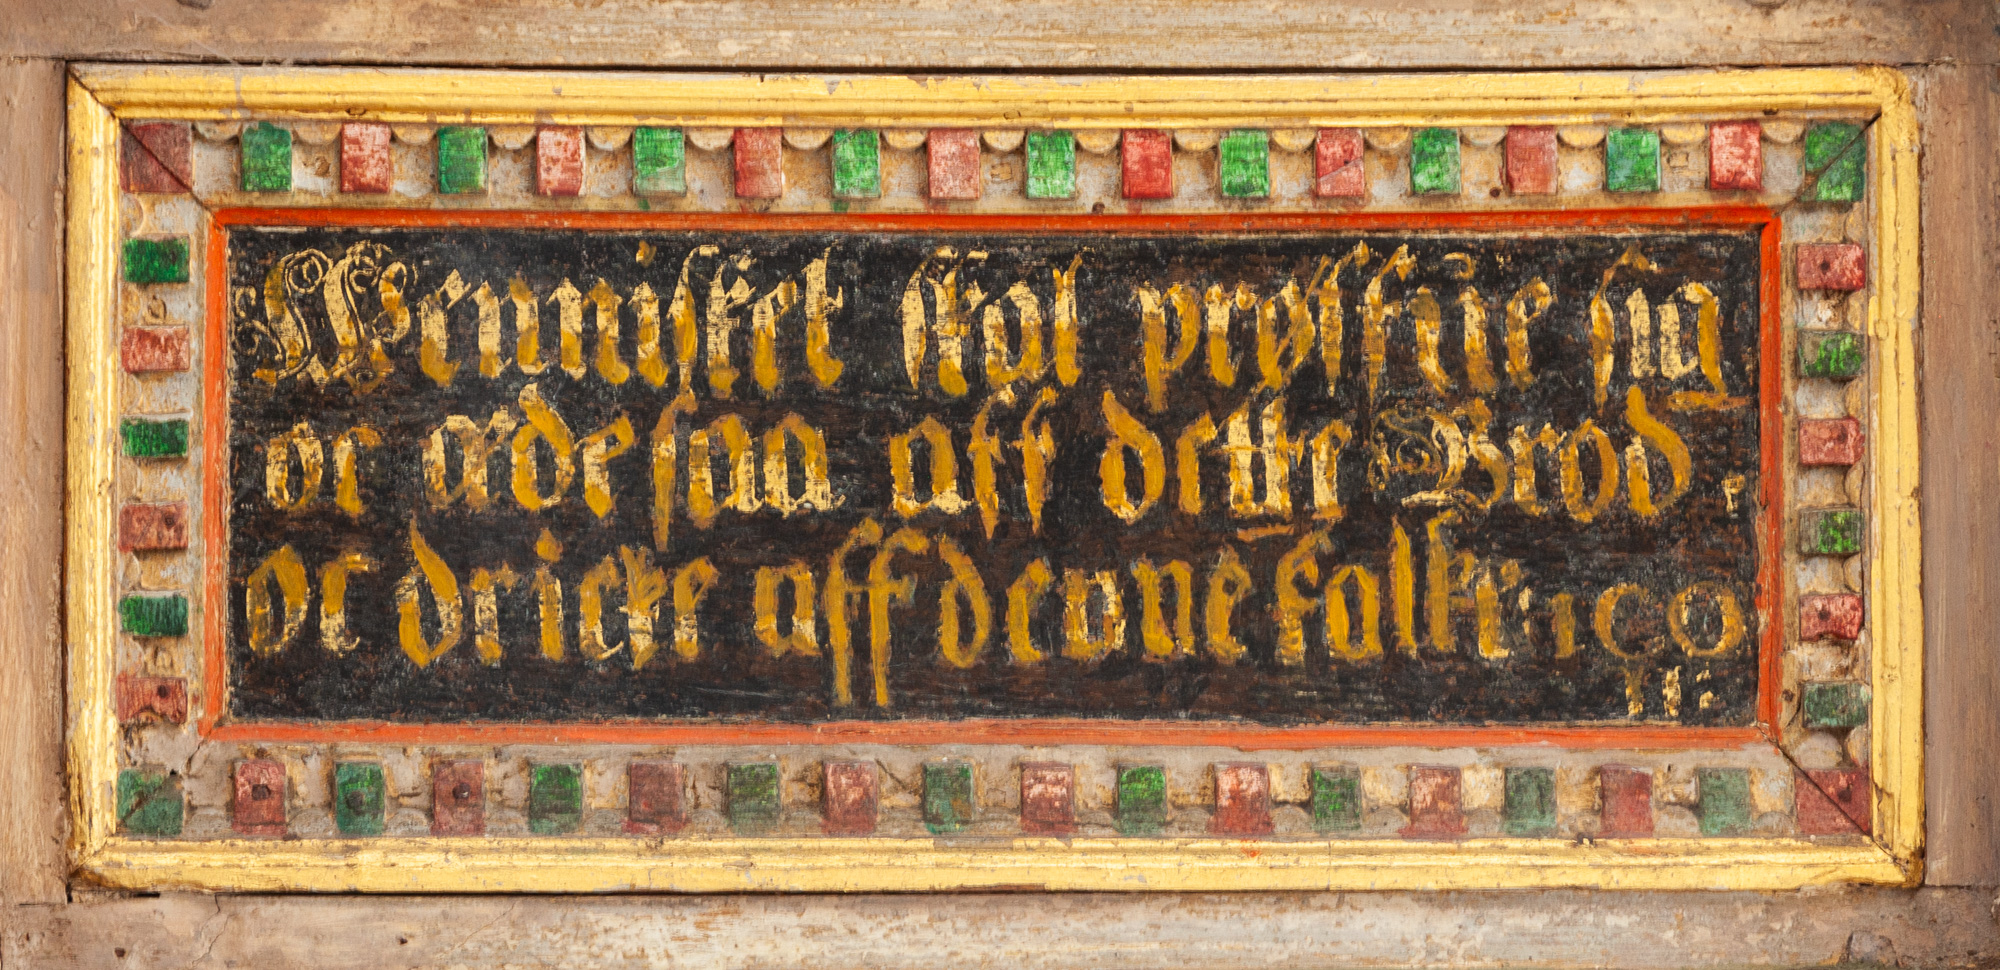 Menniſket ſkal prøffue ſig
oc æde ſaa aff dette Brod
oc dricke aff denne kalk: 1 CO
11: